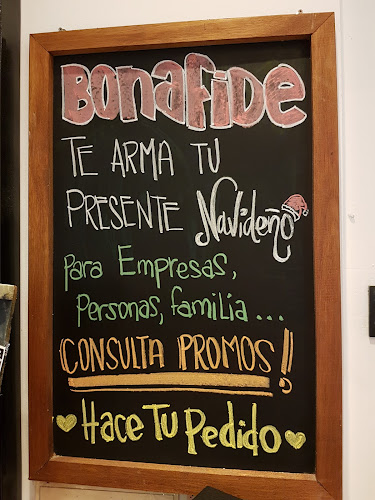 BONAFIDE
TE ARMA TU
PRESENTE Navideño
Para Empresas,
Personas, familia...
CONSULTA PROMOS!
Hace Tu Pedido